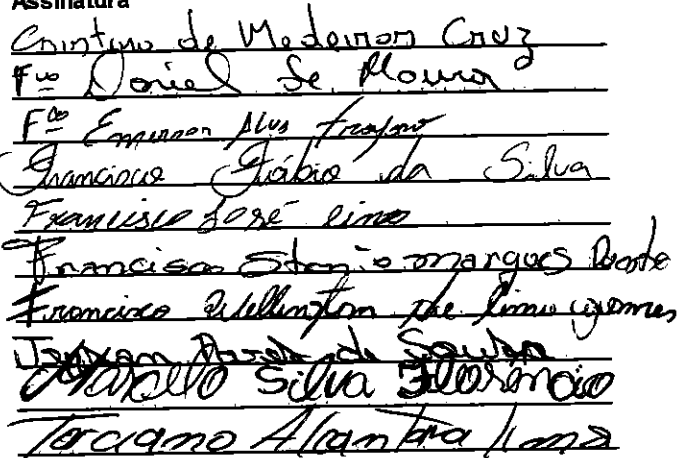 Assinatura
Cristino de Medeiros Cruz
Fco Daniel de Moura
Fco Emerson
Francisco Fábio da Silva
Francisco José Lima
Francisco Stenio marques Duarte
Francisco Wellington de lima gomes
de Souza
Marcello Silva Florêncio
Tarciano Alcantara lima